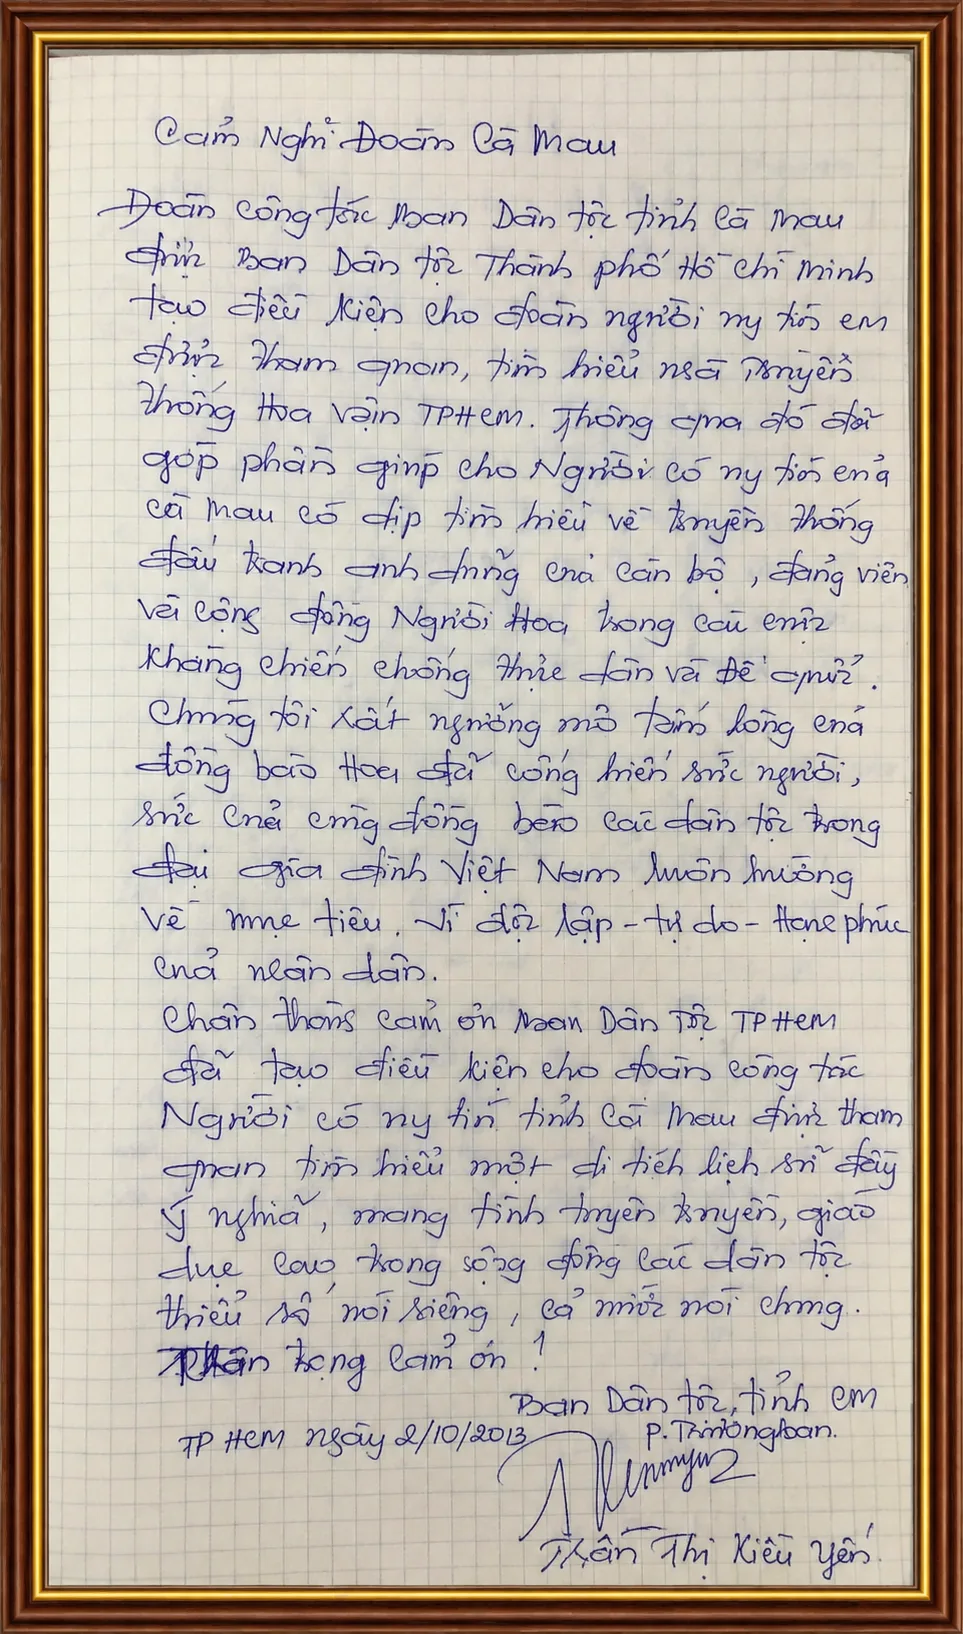 Cảm Nghĩ Đoàn Cà Mau
Đoàn công tác Ban Dân tộc tỉnh Cà Mau
được Ban Dân tộc Thành phố Hồ Chí Minh
tạo điều kiện cho đoàn người uy tín CM
được tham quan, tìm hiểu nhà Truyền
thống Hoa vận TPHCM. Thông qua đó đã
góp phần giúp cho Người có uy tín của
Cà Mau có dịp tìm hiểu về truyền thống
đấu tranh anh dũng của cán bộ, đảng viên
và cộng đồng Người Hoa trong các cuộc
kháng chiến chống thực dân và Đế quốc.
Chúng tôi rất ngưỡng mộ tấm lòng của
đồng bào Hoa đã cống hiến sức người,
sức của cùng đồng bào các dân tộc trong
đại gia đình Việt Nam luôn hướng
về mục tiêu. Vì độc lập - tự do - Hạnh phúc
của nhân dân.
Chân thành cảm ơn Ban Dân Tộc TPHCM
đã tạo điều kiện cho đoàn công tác
Người có uy tín tỉnh Cà Mau được tham
quan tìm hiểu một di tích lịch sử đầy
ý nghĩa, mang tính tuyên truyền, giáo
dục cao trong cộng đồng các dân tộc
thiểu số nói riêng, cả nước nói chung.
Trân trọng cảm ơn!
Ban Dân tộc, tỉnh CM
TP HCM ngày 2/10/2013
P. Trưởng ban.
Trần Thị Kiều Yến